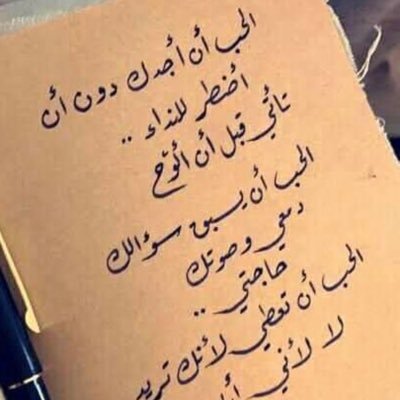 الحب أن أجدك دون أن
أضطر للنداء ..
تأتي قبل أن ألوّح
الحب أن يسبق سؤالك
دمعي وصوتك
حاجتي ..
الحب أن تعطي لأنك تريد
لا لأني